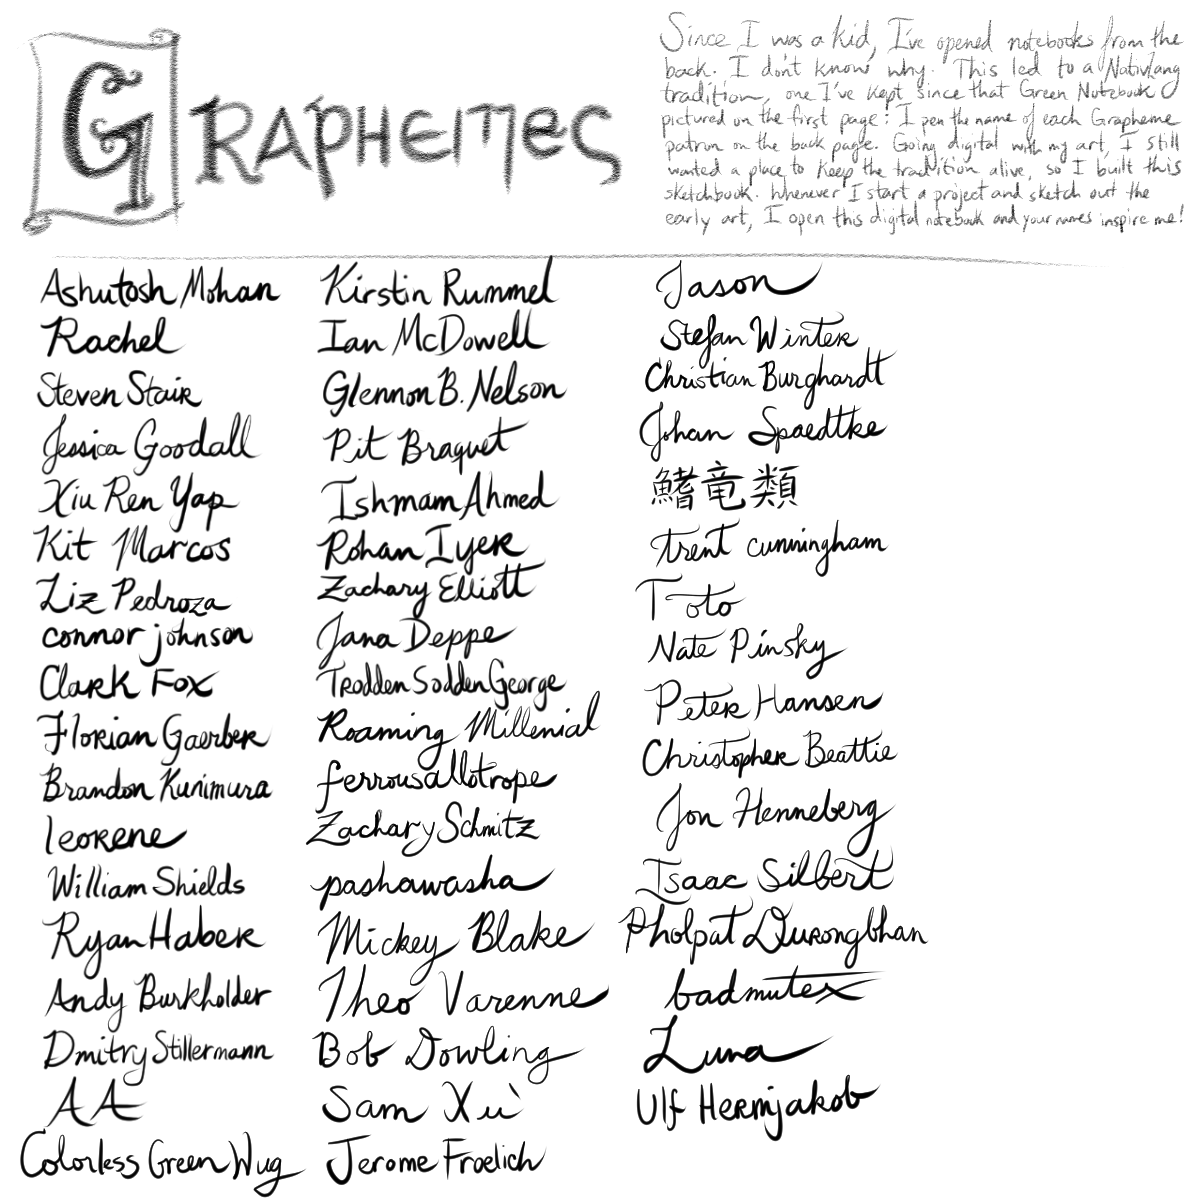 GRAPHEMES
Since I was a kid, I've opened notebooks from the
back. I don't know why. This led to a NativLang
tradition, one I've kept since that Green Notebook
pictured on the first page: I pen the name of each Grapheme
patron on the back page. Going digital with my art, I still
wanted a place to keep the tradition alive, so I built this
sketchbook. Whenever I start a project and sketch out the
early art, I open this digital notebook and your names inspire me!
Ashutosh Mohan
Rachel
Steven Stair
Jessica Goodall
Xiu Ren Yap
Kit Marcos
Liz Pedroza
connor johnson
Clark Fox
Florian Gaerber
Brandon Kunimura
leorene
William Shields
Ryan Haber
Andy Burkholder
Dmitry Stillermann
AA
Colorless Green Wug
Kirstin Rummel
Ian McDowell
Glennon B. Nelson
Pit Braquet
Ishmam Ahmed
Rohan Iyer
Zachary Elliott
Jana Deppe
Trodden Sodden George
Roaming Millenial
ferrousallotrope
Zachary Schmitz
pashawasha
Mickey Blake
Theo Varenne
Bob Dowling
Sam Xù
Jerome Froelich
Jason
Stefan Winter
Christian Burghardt
Johan Spaedtke
鰭竜類
trent cunningham
Toto
Nate Pinsky
Peter Hansen
Christopher Beattie
Jon Henneberg
Isaac Silbert
Pholpat Durongbhan
badmutex
Luna
Ulf Hermjakob